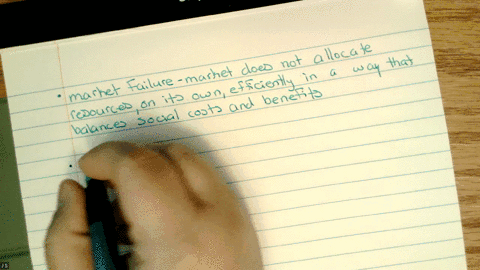 • market failure - market does not allocate
resources, on its own, efficiently in a way that
balances social costs and benefits
•